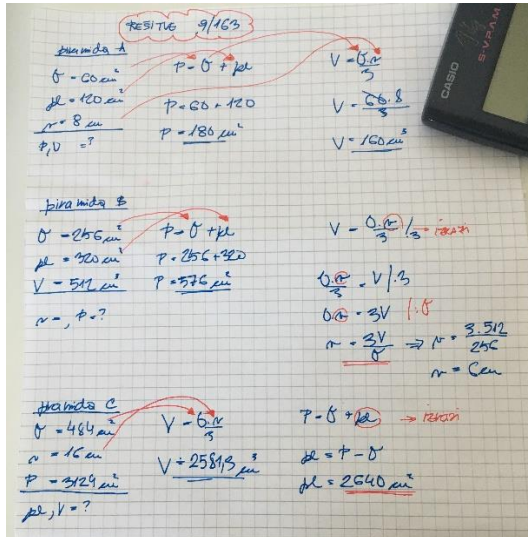 REŠITVE 9/163
piramida A
O = 60 cm²
pl = 120 cm²
v = 8 cm
P, V = ?
P = O + pl
P = 60 + 120
P = 180 cm²
V = O·v/3
V = 60·8/3
V = 160 cm³
CASIO
S-V.P.A.M.
piramida B
O = 256 cm²
pl = 320 cm²
V = 512 cm³
v = , P = ?
P = O + pl
P = 256 + 320
P = 576 cm²
V = O·v/3 /3 → izrazi
O·v/3 = V /·3
O·v = 3V /:O
v = 3V/O ⇒ v = 3·512/256
v = 6 cm
piramida C
O = 484 cm²
v = 16 cm
P = 3124 cm²
pl, V = ?
V = O·v/3
V = 2581,3 cm³
P = O + pl → izrazi
pl = P - O
pl = 2640 cm²